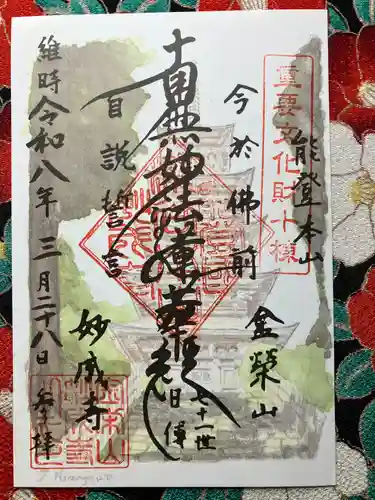 重要文化財十棟
能登本山
金榮山
今於佛前
南無妙法蓮華経
七十一世
日
自説誓言
妙成寺
維時令和八年三月二十八日
拝